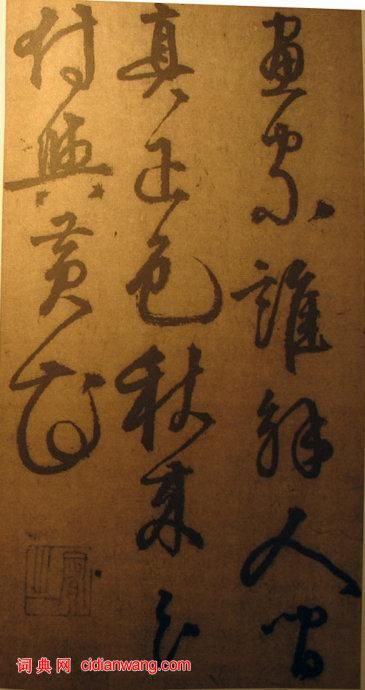 畫家誰解人間
真正色秋來分
付與黄花
词典网 cidianwang.com